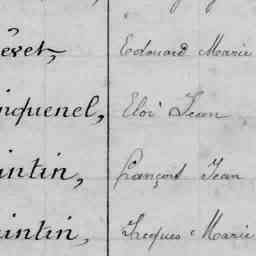 Edouard Marie
nquenel, Eloi Jean
intin, François Jean
uintin, Jacques Marie